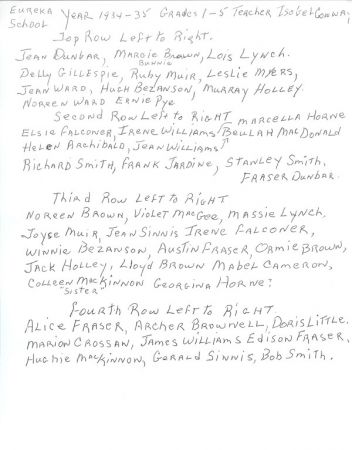 Eureka Year 1934-35 Grades 1-5 Teacher Isobel
School
Top Row Left to Right.
Jean Dunbar, Margie Brown, Lois Lynch.
Bunnie
Delly Gillespie, Ruby Muir, Leslie Myers,
Jean Ward, Hugh Bezanson, Murray Holley.
Noreen Ward Ernie Pye
Second Row Left to Right Marcella Horne
Elsie Falconer, Irene Williams Beulah MacDonald
Helen Archibald, Jean Williams
Richard Smith, Frank Jardine, Stanley Smith.
Fraser Dunbar.
Third Row Left to Right
Noreen Brown, Violet MacGee, Massie Lynch.
Joyse Muir, Jean Sinnis Irene Falconer,
Winnie Bezanson, Austin Fraser, Ormie Brown,
Jack Holley, Lloyd Brown Mabel Cameron,
Colleen MacKinnon Georgina Horne?
"Sister"
Fourth Row Left to Right.
Alice Fraser, Archer Brownell, Doris Little.
Marion Crossan, James Williams Edison Fraser,
Hughie MacKinnon, Gerald Sinnis, Bob Smith.